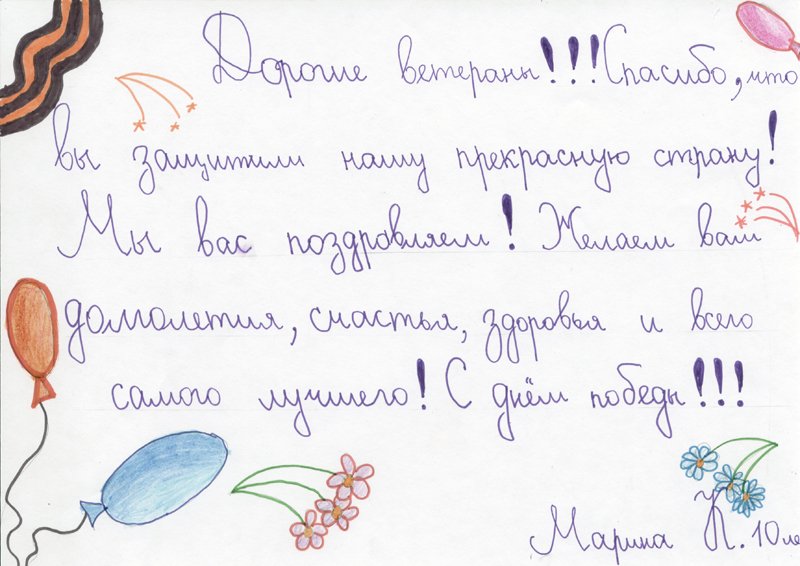 Дорогие ветераны!!! Спасибо, что
вы защитили нашу прекрасную страну!
Мы вас поздравляем! Желаем вам
домолетия, счастья, здоровья и всего
самого лучшего! С днём победы!!!
Марина К. 10 ле